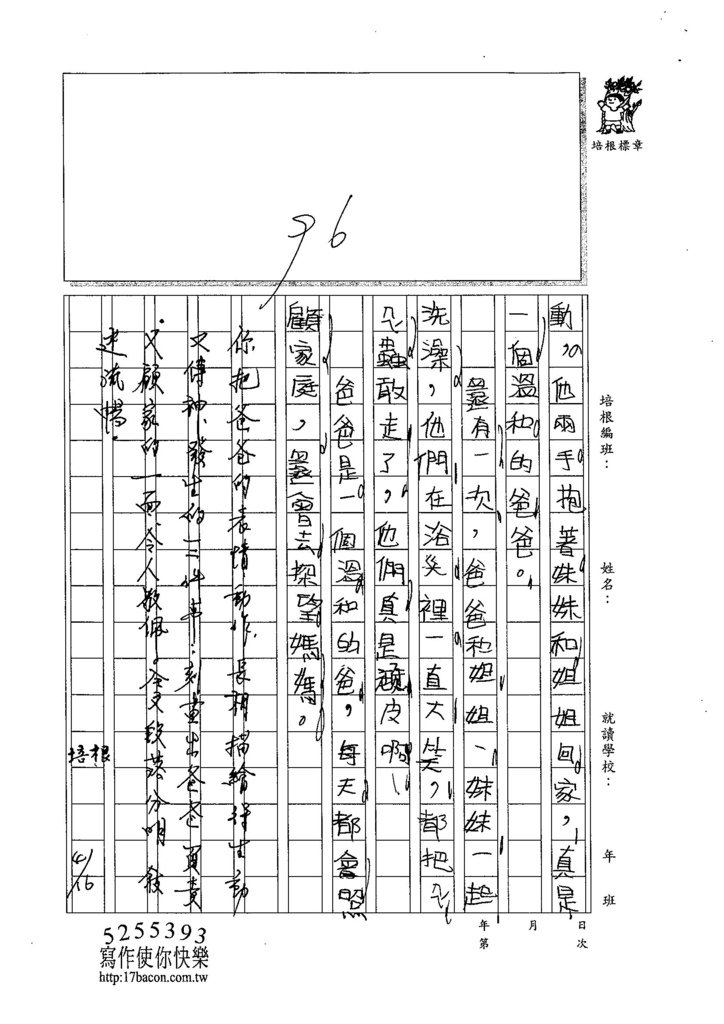 培根標章
96
培根編班：
姓名：
就讀學校：
年 班
年 月 日
第 次
動，他兩手抱著妹妹和姐姐回家，真是
一個溫和的爸爸。
還有一次，爸爸和姐姐、妹妹一起
洗澡，他們在浴室裡一直大笑，都把
蟲敢走了，他們真是頑皮啊！
爸爸是一個溫和的爸，每天都會照
顧家庭，還會去探望媽媽。
你把爸爸的表情動作、長相描繪得生動
又傳神、發生的三件事，刻畫出爸爸負責
又顧家的一面，令人敬佩。全文段落分明、敘
述流暢。
培根
4/16
5255393
寫作使你快樂
http:17bacon.com.tw